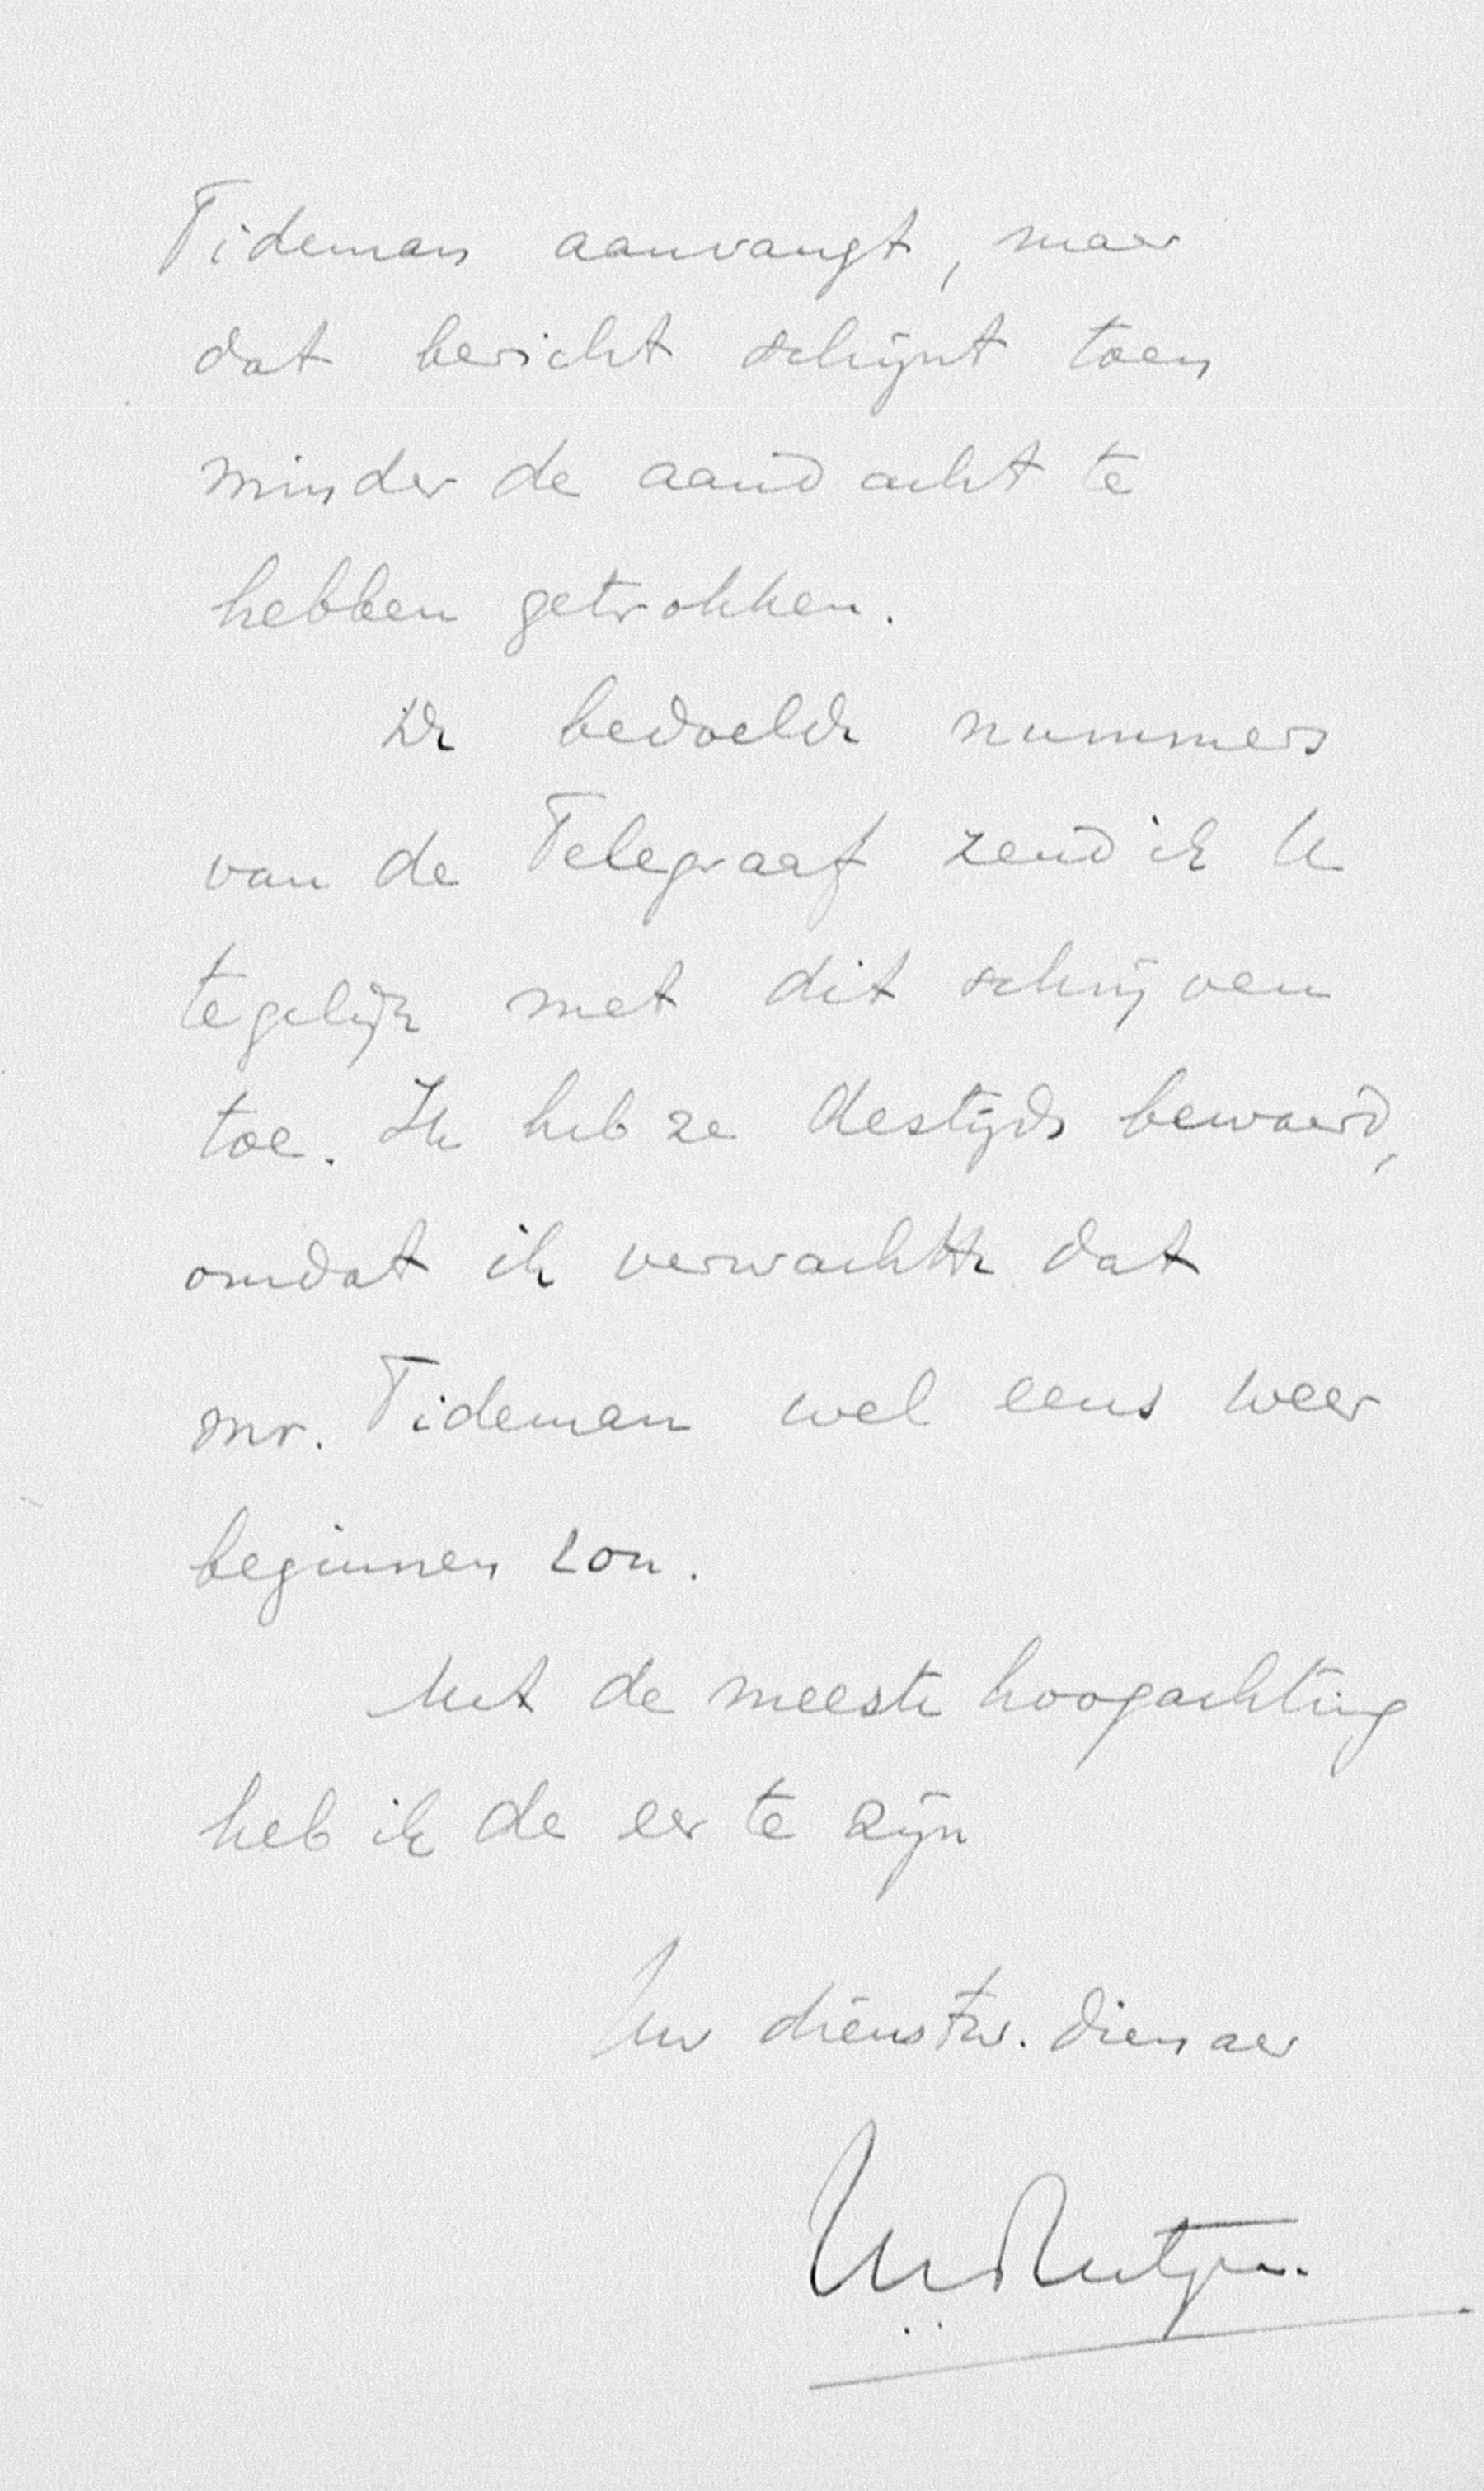 Tideman aanvangt, maar
dat bericht schijnt toen
minder de aandacht te
hebben getrokken.
De bedoelde nummers
van de Telegraaf zend ik U
tegelijk met dit schrijven
toe. Ik heb ze destijds bewaard,
omdat ik verwachtte dat
mr. Tideman wel eens weer
beginnen zou.
Met de meeste hoogachting
heb ik de eer te zijn
Uw dienstw. dienaar